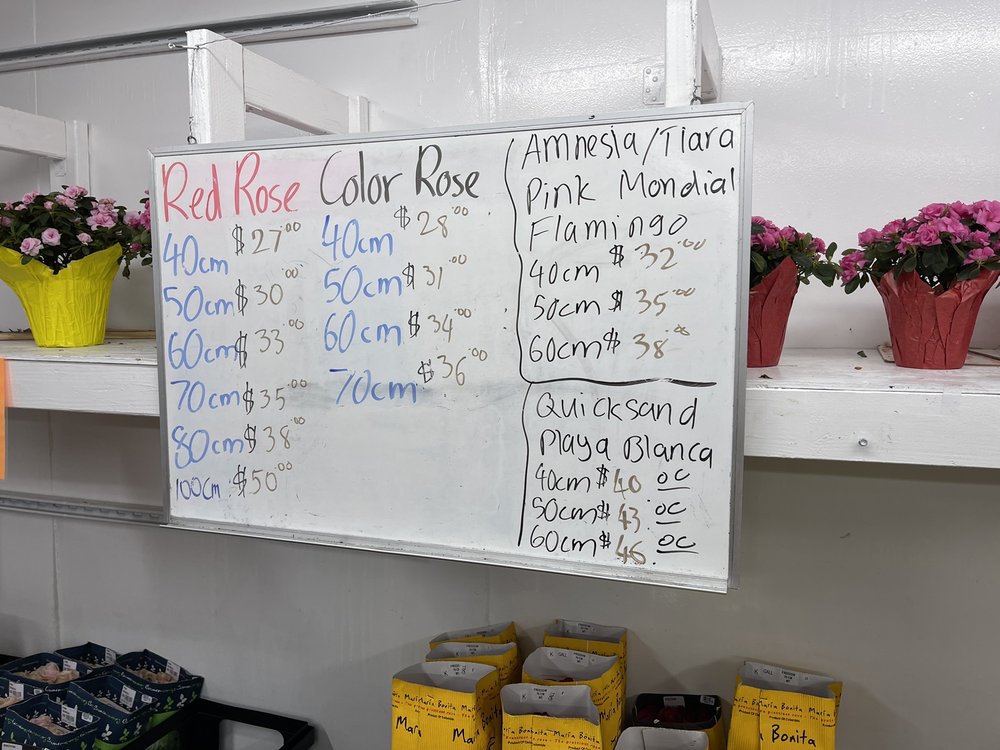 Red Rose
40cm $27.00
50cm $30.00
60cm $33.00
70cm $35.00
80cm $38.00
100cm $50.00
Color Rose
40cm $28.00
50cm $31.00
60cm $34.00
70cm $36.00
Amnesia/Tiara
Pink Mondial
Flamingo
40cm $32.00
50cm $35.00
60cm $38.00
Quicksand
Playa Blanca
40cm $40.oc
50cm $43.oc
60cm $46.oc
María Bonita
Bonita